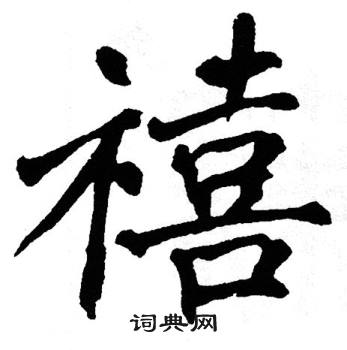 禧
词典网